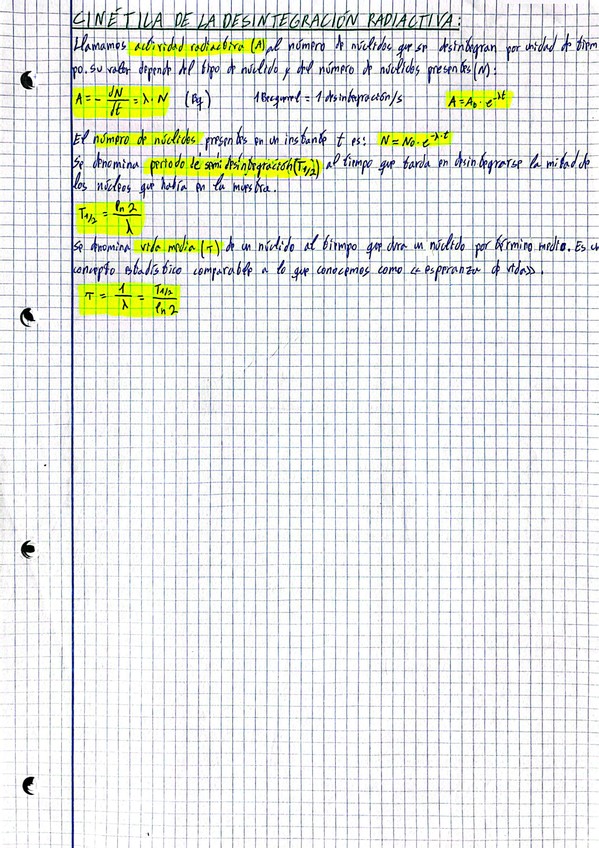 CINÉTICA DE LA DESINTEGRACIÓN RADIACTIVA:
Llamamos actividad radiactiva (A) al número de núclidos que se desintegran por unidad de tiem
po. Su valor depende del tipo de núclido y del número de núclidos presentes (N):
A = - dN/dt = λ · N (Bq) 1 Becquerel = 1 desintegración/s A = A₀ · e^-λt
El número de núclidos presentes en un instante t es: N = N₀ · e^-λ·t
Se denomina periodo de semidesintegración (T1/2) al tiempo que tarda en desintegrarse la mitad de
los núcleos que había en la muestra.
T1/2 = ln 2/λ
Se denomina vida media (τ) de un núclido al tiempo que dura un núclido por término medio. Es un
concepto estadístico comparable a lo que conocemos como «esperanza de vida».
τ = 1/λ = T1/2/ln 2